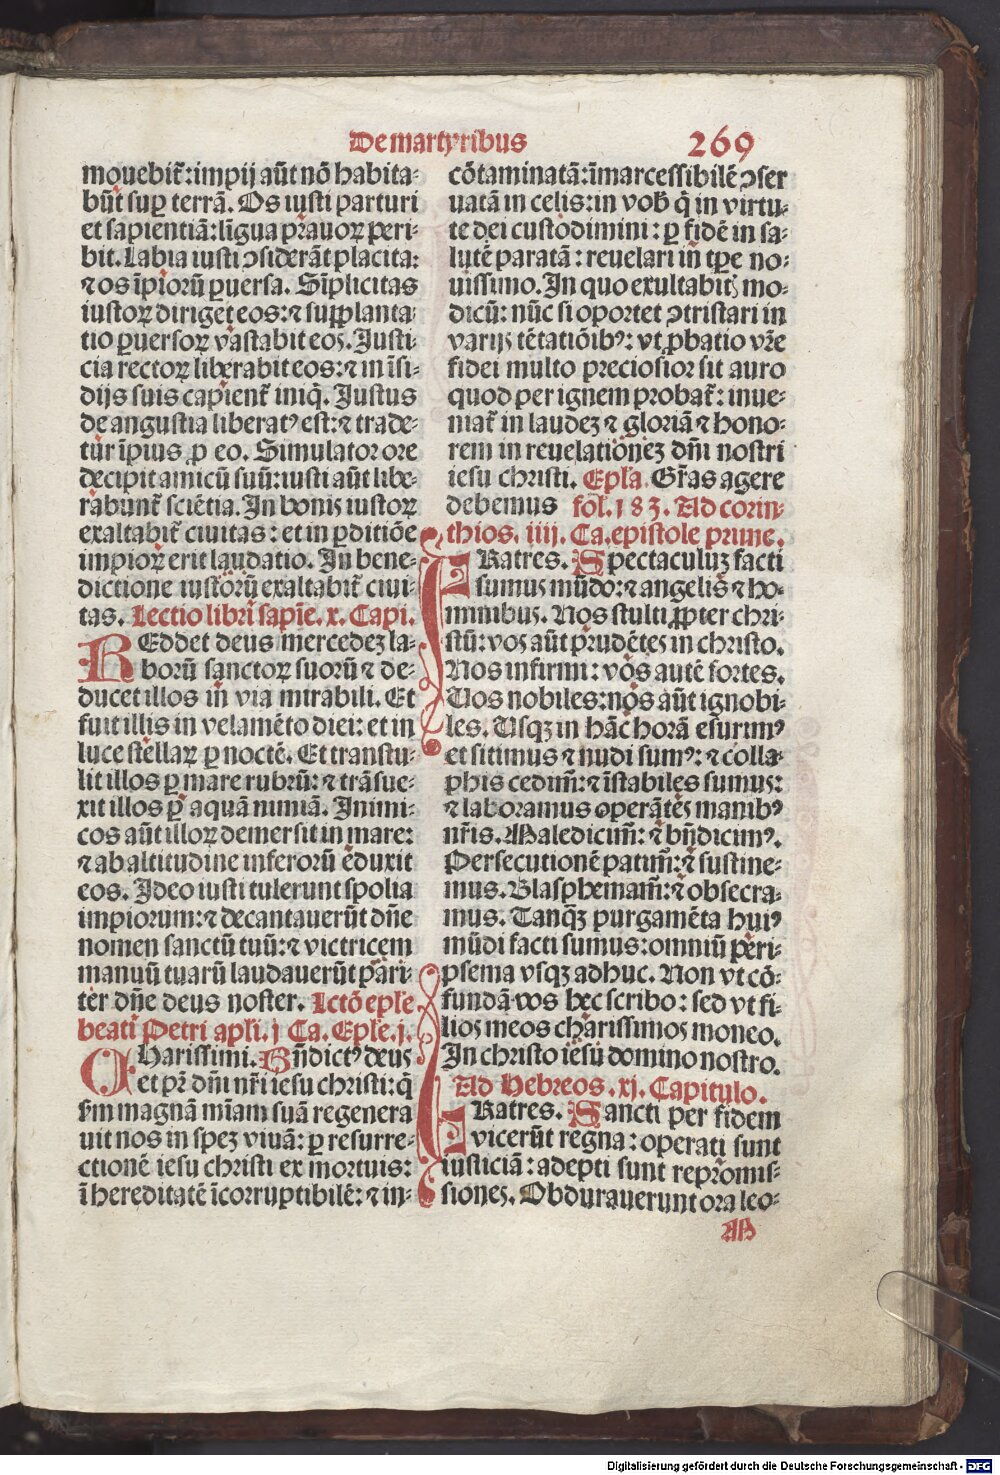 De martyribus
269
mouebit᷑: impij aūt nō habita-
būt suꝑ terrā. Os iusti parturi
et sapientiā: lingua prauoꝝ peri-
bit. Labia iusti ↄsiderāt placita:
⁊ os īpiorū ꝑuersa. Sīplicitas
iustoꝝ diriget eos: ⁊ supplanta-
tio ꝑuersoꝝ vastabit eos. Justi-
cia rectoꝝ liberabit eos: ⁊ in īsi-
dijs suis capient᷑ iniq̄. Justus
de angustia liberatꝰ est: ⁊ trade-
tur īpius ꝓ eo. Simulator ore
decipit amicū suū: iusti aūt libe-
rabunt᷑ sciētia. In bonis iustoꝝ
exaltabit᷑ ciuitas: et in ꝑditiōe
impioꝝ erit laudatio. In bene-
dictione iustorū exaltabit᷑ ciui-
tas. Lectio libri sapīe. x. Capi.
REddet deus mercedeꝫ la-
borū sanctoꝝ suorū ⁊ de-
ducet illos in via mirabili. Et
fuit illis in velamēto diei: et in
luce stellaꝝ ꝑ noctē. Et transtu-
lit illos ꝑ mare rubrū: ⁊ trāsue-
xit illos ꝑ aquā nimiā. Inimi-
cos aūt illoꝝ demersit in mare:
⁊ ab altitudine inferorū eduxit
eos. Ideo iusti tulerunt spolia
impiorum: ⁊ decantauerūt dn̄e
nomen sanctū tuū: ⁊ victricem
manuū tuarū laudauerūt pari-
ter dn̄e deus noster. Lctō eple
beati Petri apli. j Ca. Eple. j.
CHarissimi. Bn̄dictꝰ deus
et pr̄ dn̄i nr̄i iesu christi: q̄
fm magnā mīam suā regenera
uit nos in speꝫ viuā: ꝑ resurre-
ctionē iesu christi ex mortuis:
ī hereditatē īcorruptibilē: ⁊ in-
cōtaminatā: īmarcessibilē ↄser
uatā in celis: in vob̄ q̄ in virtu-
te dei custodimini: ꝑ fidē in sa-
lutē paratā: reuelari in tꝑe no-
uissimo. In quo exultabitꝭ mo-
dicū: nūc si oportet ↄtristari in
varijs tētatiōibꝰ: vt ꝓbatio vr̄e
fidei multo preciosior sit auro
quod per ignem probat᷑: inue-
niat᷑ in laudeꝫ ⁊ gloriā ⁊ hono-
rem in reuelationeꝫ dn̄i nostri
iesu christi. Epl̄a. Gr̄as agere
debemus fol. 183. Ad corin-
thios. iiij. Ca. epistole prime.
FRatres. Spectaculuꝫ facti
sumus mūdo: ⁊ angelis ⁊ ho-
minibus. Nos stulti ꝓpter chri-
stū: vos aūt prudētes in christo.
Nos infirmi: vos autē fortes.
Uos nobiles: nos aūt ignobi-
les. Usqꝫ in hāc horā esurimꝰ
et sitimus ⁊ nudi sumꝰ: ⁊ colla-
phis cedim᷑: ⁊ īstabiles sumus:
⁊ laboramus operātes manibꝰ
nr̄is. Maledicim᷑: ⁊ bn̄dicimꝰ.
Persecutionē patim᷑: ⁊ sustine-
mus. Blasphemam᷑: ⁊ obsecra-
mus. Tanqꝫ purgamēta huiꝰ
mūdi facti sumus: omniū peri-
psema vsqꝫ adhuc. Non vt cō-
fundā vos hec scribo: sed vt fi-
lios meos charissimos moneo.
In christo iesu domino nostro.
Ad Hebreos. xj. Capitulo.
FRatres. Sancti per fidem
vicerūt regna: operati sunt
iusticiā: adepti sunt repromis-
siones. Obdurauerunt ora leo-
M
Digitalisierung gefördert durch die Deutsche Forschungsgemeinschaft - DFG